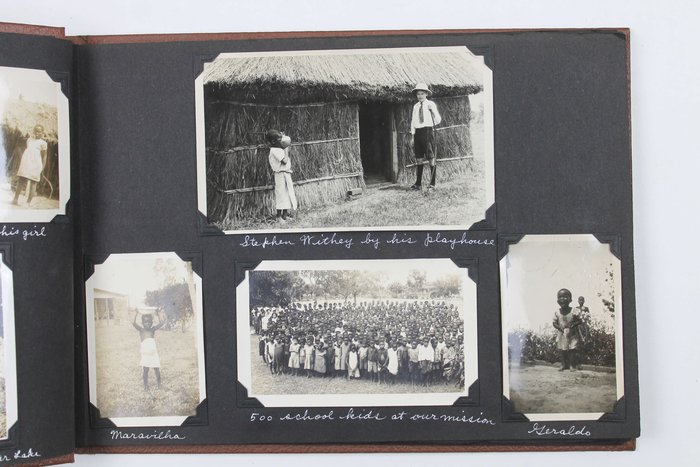 his girl
ar Lake
Stephen Withey by his playhouse
Maravilha
500 school kids at our mission
Geraldo